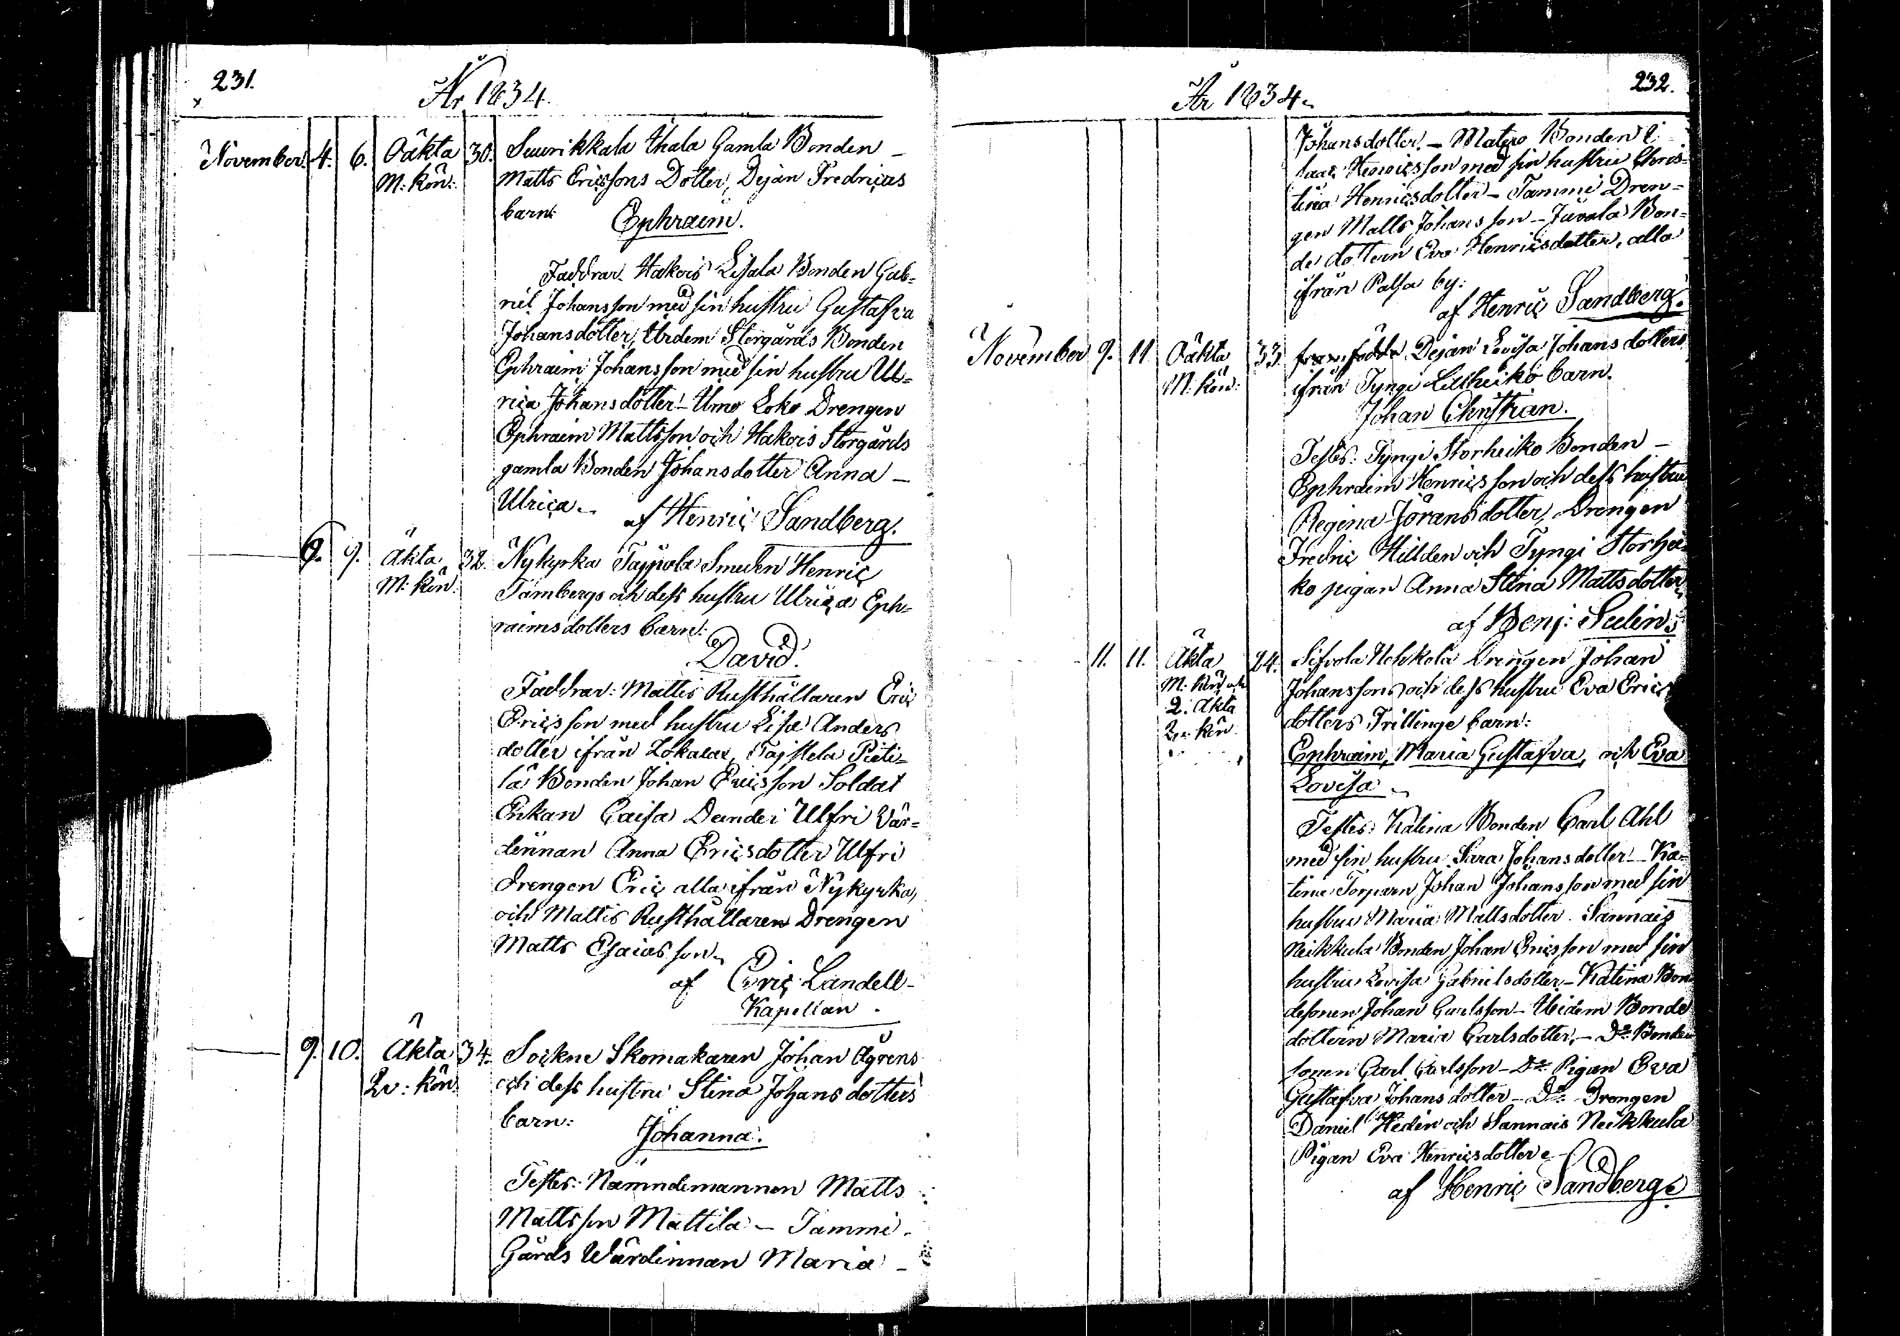 231.
År 1834.
November. 4. 6. Oäkta 30. Suurikkala Uhala Gamla Bonden –
M: kön: Matts Ericssons Dotter, Dejan Fredricas
barn
Ephraim.
Faddrar. Hakois Eijala Bonden Gab-
riel Johansson med sin hustru Gustafva
Johansdotter, Urdem Storgårds Bonden
Ephraim Johansson med sin hustru Ul-
rica Johansdotter – Umo Loko Drengen
Ephraim Mattsson och Hakois Storgårds
gamla Bonden Johansdotter Anna –
Ulrica.
af Henric Sandberg.
9. 9. Äkta 32. Nykyrka Tappala Smeden Henric
M: kön: Tambergs och dess hustru Ulrica Eph-
raimsdotters barn:
David.
Faddrar: Mattis Rusthållaren Eric
Ericsson med hustru Lisa Anders
dotter ifrån Lokalax, Pieti-
lä Bonden Johan Ericsson Soldat
Enkan Caisa Ulfri Vär-
dinnan Anna Ericsdotter Ulfri
drengen Eric alla ifrån Nykyrka,
och Mattis Rusthållaren Drengen
Matts Esaiasson.
af Eric Landell
Kapellan.
9. 10. Äkta 34. Sockne Skomakaren Johan Ågrens
Qv: kön. och dess hustru Stina Johansdotters
barn:
Johanna.
Testes: Nämndemannen Matts
Mattsson Mattila – Tammi
Gårds Wärdinnan Maria –
232.
År 1834.
Johansdotter. – Matero Bonden I-
saac Henricsson med sin hustru Chris-
tina Henricsdotter – Tammi Dren-
gen Matts Johansson – Juvala Bon-
de dottern Eva Henricsdotter, alla
ifrån Palsa by.
af Henric Sandberg.
November 9. 11 Oäkta 33. Dejan Lovisa Johansdotters
M: kön: ifrån Tyngi Lillheiko barn.
Johan Christian.
Testes: Tyngi Storheiko Bonden –
Ephraim Henricsson och dess hustru
Regina Göransdotter, Drengen
Fredric Hillden och Tyngi Storhei-
ko pigan Anna Stina Mattsdotter
af Benj: Selin.
11. 11. Äkta 24. Sifvola Uchkola Drengen Johan
M: kön och Johanssons och dess hustru Eva Erics
2. äkta dotters Trillinge barn:
Qv: kön Ephraim, Maria Gustafva, och Eva
Lovisa
Testes: Katina Bonden Carl Ahl
med sin hustru Sara Johansdotter – Ka-
tina Torparn Johan Johansson med sin
hustru Maria Mattsdotter. Sannais
Neikkula Bonden Johan Ericsson med sin
hustru Lovisa Gabrielsdotter – Katina Bon
desonen Johan Carlsson – Ibidem Bonde
dottern Maria Carlsdotter, – Do Bonde
sonen Carl Carlsson – Do Pigan Eva
Gustafva Johansdotter – Do Drengen
Daniel Hedin och Sannais Neikkula
Pigan Eva Henricsdotter
af Henric Sandberg.